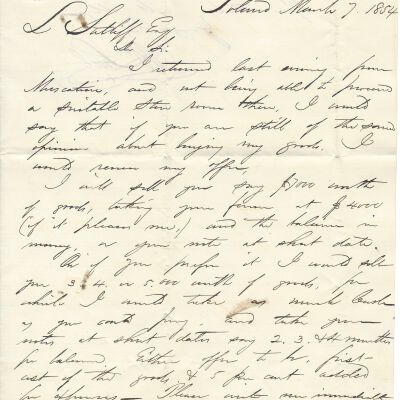 Toland March 7. 1854
L Sutliff Esq
Dr Sir
I returned last evening from
Muscatine, and not being able to procure
a suitable Store room there, I would
say that if you are still of the same
opinion about buying my goods. I
would renew my offer,
I will sell you say $7000 worth
of goods, taking your farm at $4000
(if it pleases me,) and the balance in
money, or your note at short date.
Or if you prefer it I would sell
you 3. 4. or 5.00 worth of goods, for
which I would take as much Cash
as you could pay and take your
notes at short dates say 2. 3. & 4 months
for balance. Either offer to be, first
cost of the goods & 5 per cent added
for expenses — Please write me immediately